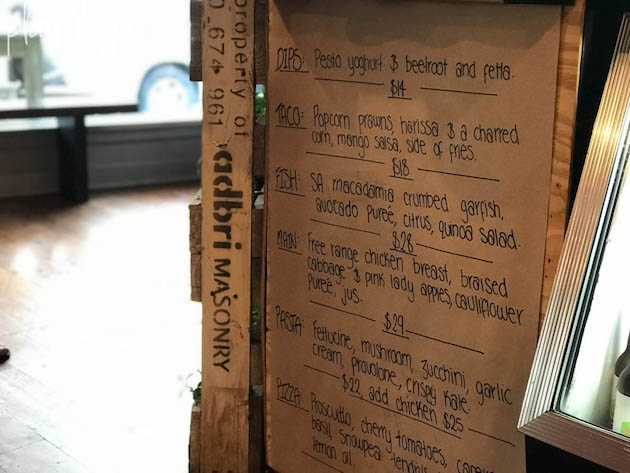 property of
0.674 961
adbri MASONRY
DIPS: Pesto yoghurt & beetroot and fetta.
$14
TACO: Popcorn prawns, harissa & a charred
corn, mango salsa, side of fries.
$18
FISH: SA macadamia crumbed garfish,
avocado pureé, citrus, quinoa salad.
$28
MAIN: Free range chicken breast, braised
cabbage & pink lady apples, cauliflower
pureé, jus.
$29
PASTA: Fettucine, mushroom, zucchini, garlic
cream, provolone, crispy kale.
$22, add chicken $25
PIZZA: Proscuitto, cherry tomatoes,
basil, snowpea tendrils
lemon oil.